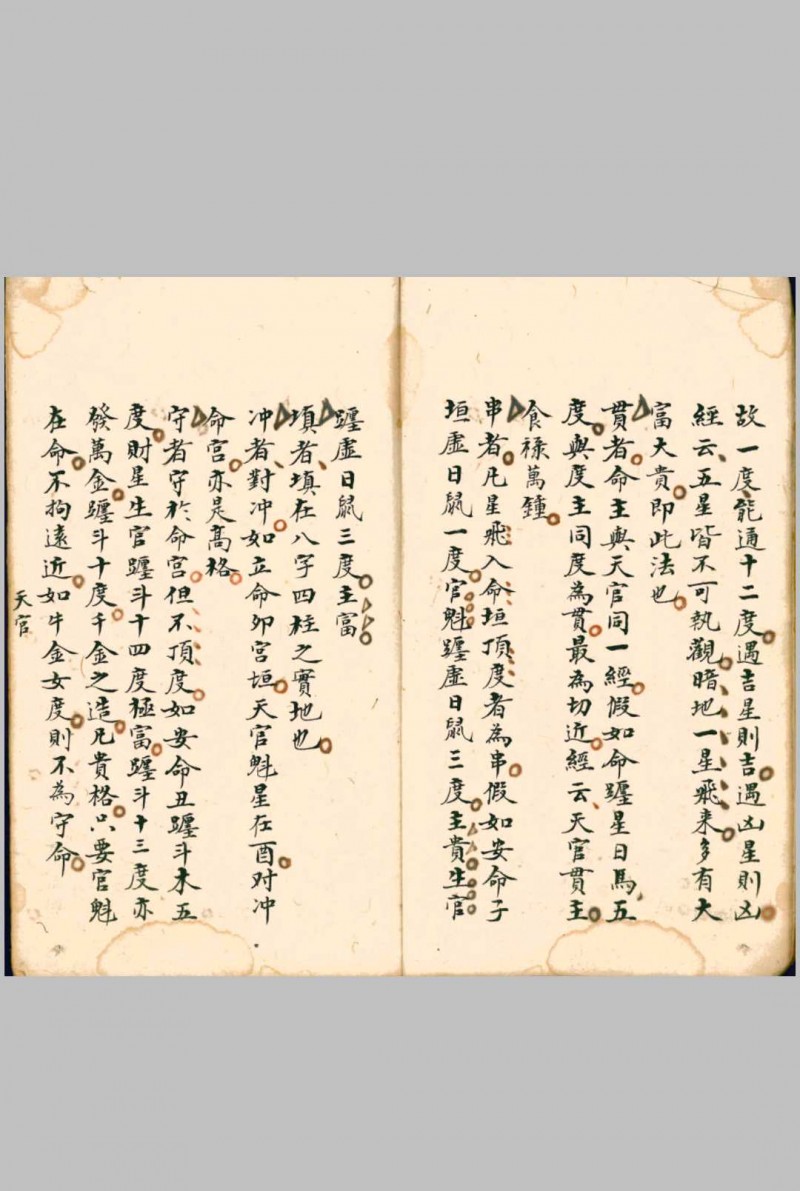 故一度能通十二度遇吉星則吉遇凶星則凶
經云五星皆不可執觀暗地一星飛來多有大
富大貴即此法也
貫者命主與天官同一經假如命躔星日馬五
度與度主同度為貫最為切近經云天官貫主
食祿萬鍾
串者凡星飛入命垣頂度者為串假如安命子
垣虛日鼠一度官魁躔虛日鼠三度主貴生官
躔虛日鼠三度主富
填者填在八字四柱之實地也
冲者對冲如立命卯宮垣天官魁星在酉对冲
命宮亦是高格
守者守於命宮但不頂度如安命丑躔斗木五
度財星生官躔斗十四度極富躔斗十三度亦
發萬金躔斗十度千金之造凡貴格只要官魁
在命不拘遠近如牛金女度則不為守命
天官